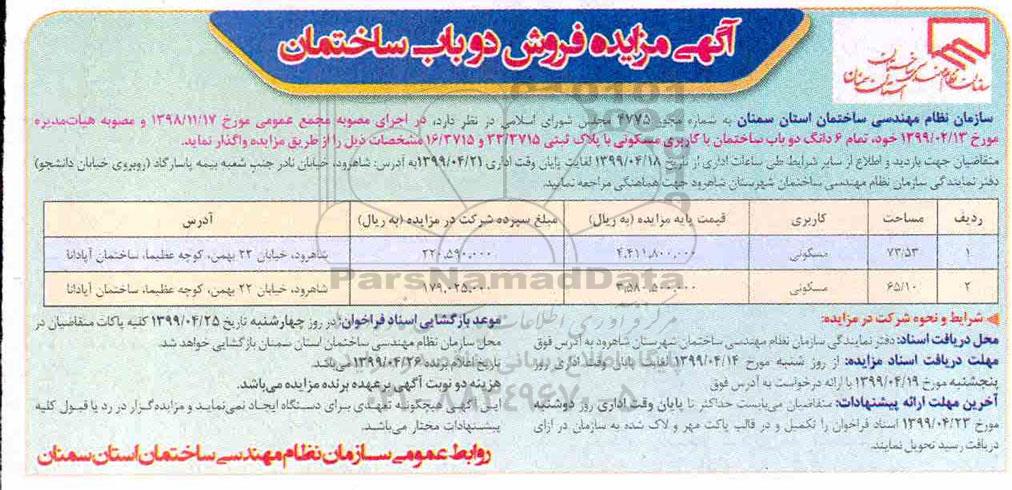 آگهی مزایده فروش دو باب ساختمان
سازمان نظام مهندسی ساختمان
استان سمنان
سازمان نظام مهندسی ساختمان استان سمنان به شماره مجوز ۴۷۷۵ مجلس شورای اسلامی در نظر دارد، در اجرای مصوبه مجمع عمومی مورخ ۱۳۹۸/۱۱/۱۷ و مصوبه هیات‌مدیره
مورخ ۱۳۹۹/۰۲/۱۳ خود، تمام ۶ دانگ دو باب ساختمان با کاربری مسکونی با پلاک ثبتی ۲۳/۳۷۱۵ و ۱۶/۳۷۱۵ مشخصات ذیل را از طریق مزایده واگذار نماید.
متقاضیان جهت بازدید و اطلاع از سایر شرایط طی ساعات اداری از تاریخ ۱۳۹۹/۰۴/۱۸ لغایت پایان وقت اداری ۱۳۹۹/۰۴/۲۱ به آدرس: شاهرود، خیابان نادر جنب شعبه بیمه پاسارگاد (روبروی خیابان دانشجو)
دفتر نمایندگی سازمان نظام مهندسی ساختمان شهرستان شاهرود جهت هماهنگی مراجعه نمایند.
ردیف مساحت کاربری قیمت پایه مزایده (به ریال) مبلغ سپرده شرکت در مزایده (به ریال) آدرس
۱ ۷۳/۵۳ مسکونی ۴،۴۱۱،۸۰۰،۰۰۰ ۲۲۰،۵۹۰،۰۰۰ شاهرود، خیابان ۲۲ بهمن، کوچه عظیما، ساختمان آپادانا
۲ ۶۵/۱۰ مسکونی ۳،۵۸۰،۵۰۰،۰۰۰ ۱۷۹،۰۲۵،۰۰۰ شاهرود، خیابان ۲۲ بهمن، کوچه عظیما، ساختمان آپادانا
ParsNamadData
مرکز فرآوری اطلاعات
شرایط و نحوه شرکت در مزایده:
محل دریافت اسناد: دفتر نمایندگی سازمان نظام مهندسی ساختمان شهرستان شاهرود به آدرس فوق
مهلت دریافت اسناد مزایده: از روز شنبه مورخ ۱۳۹۹/۰۴/۱۴ لغایت پایان وقت اداری روز
پنجشنبه مورخ ۱۳۹۹/۰۴/۱۹ با ارائه درخواست به آدرس فوق
آخرین مهلت ارائه پیشنهادات: متقاضیان می‌بایست حداکثر تا پایان وقت اداری روز دوشنبه
مورخ ۱۳۹۹/۰۴/۲۳ اسناد فراخوان را تکمیل و در قالب پاکت مهر و لاک شده به سازمان در ازای
دریافت رسید تحویل نمایند.
موعد بازگشایی اسناد فراخوان: در روز چهارشنبه تاریخ ۱۳۹۹/۰۴/۲۵ کلیه پاکات متقاضیان در
محل سازمان نظام مهندسی ساختمان استان سمنان بازگشایی خواهد شد.
تاریخ اعلام برنده ۱۳۹۹/۰۴/۲۶ می‌باشد.
هزینه دو نوبت آگهی بر عهده برنده مزایده می‌باشد.
این آگهی هیچگونه تعهدی برای دستگاه ایجاد نمی‌نماید و مزایده‌گزار در رد یا قبول کلیه
پیشنهادات مختار می‌باشد.
روابط عمومی سازمان نظام مهندسی ساختمان استان سمنان